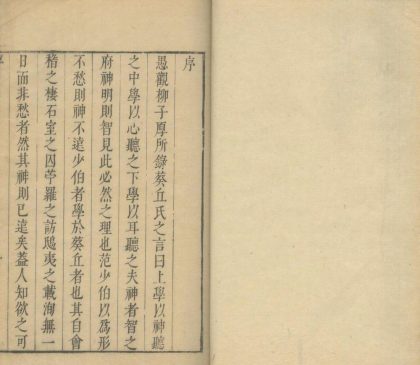 序
愚觀柳子厚所錄葵丘氏之言曰上學以神聽
之中學以心聽之下學以耳聽之夫神者智之
府神明則智見此必然之理也范少伯以爲形
不愁則神不遠少伯者學於葵丘者也其自會
稽之棲石室之囚苧羅之訪鴟夷之載洵無一
日而非愁者然其神則已遠矣葢人知欲之可
序